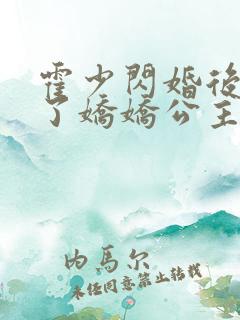 霍少閃婚後
了嬌嬌公主
內馬尔
未经同意禁止转载